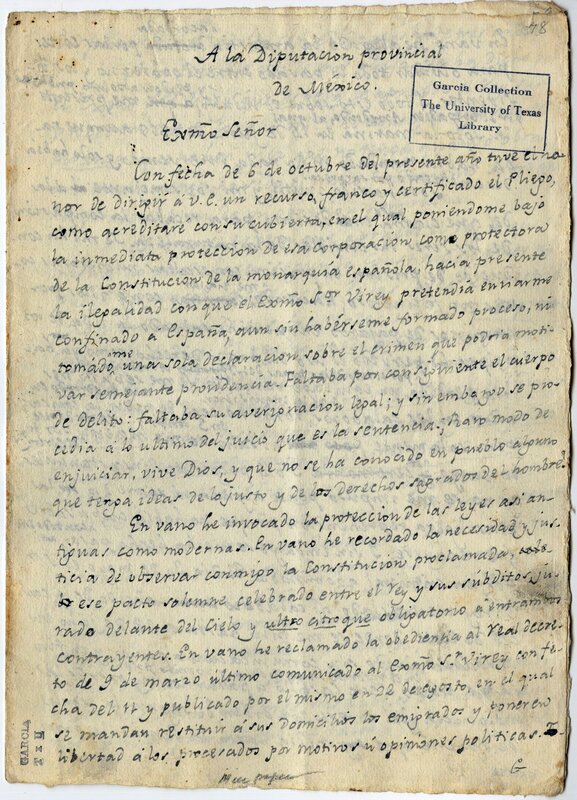 78
A la Diputacion provincial
de México.
Garcia Collection
The University of Texas
Library
Exmo Señor
Con fecha de 6 de octubre del presente año tuve el ho-
nor de dirigir á v.e. un recurso, franco y certificado el Pliego,
como acreditaré con su cubierta, en el qual poniendome bajo
la inmediata proteccion de esa Corporacion como protectora
de la Constitucion de la monarquia española, hacia presente
la ilegalidad con que el Exmo Sr. Virey pretendia enviarme
confinado á España, aun sin habérseme formado proceso, ni
tomádome una sola declaracion sobre el crimen que podria moti-
var semejante providencia. Faltaba por consiguiente el cuerpo
de delito: faltaba su averiguacion legal; y sin embargo se pro-
cedia á lo ultimo del juicio que es la sentencia. ¡Raro modo de
enjuiciar, vive Dios, y que no se ha conocido en pueblo alguno
que tenga ideas de lo justo y de los derechos sagrados del hombre!
En vano he invocado la proteccion de las leyes asi an-
tiguas como modernas. En vano he recordado la necesidad y jus-
ticia de observar conmigo la Constitucion proclamada,
ese pacto solemne celebrado entre el Rey y sus súbditos, ju-
rado delante del Cielo y ultro citroque obligatorio á entrambos
contrayentes. En vano he reclamado la obediencia al Real decre-
to de 9 de marzo último comunicado al Exmo Sr. Virey con fe-
cha del 11 y publicado por el mismo en 22 de agosto, en el qual
se mandan restituir á sus domicilios los emigrados y poner en
libertad á los procesados por motivos ú opiniones politicas.
GARCIA